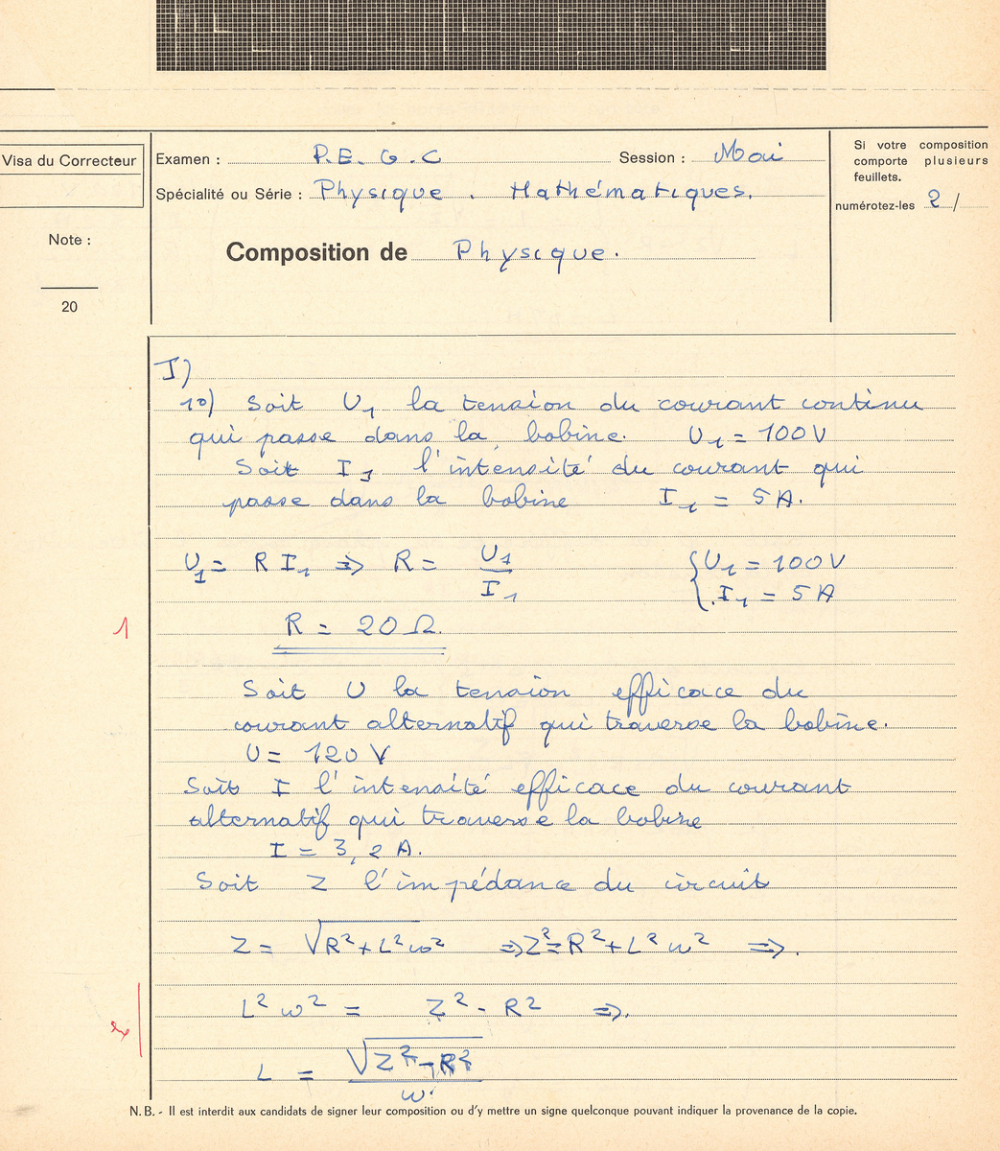 Visa du Correcteur
Note :
20
Examen : P.E.G.C Session : Mai
Spécialité ou Série : Physique . Mathématiques.
Composition de Physique.
Si votre composition
comporte plusieurs
feuillets.
numérotez-les 2 /
I)
1°) Soit U₁ la tension du courant continu
qui passe dans la bobine. U₁ = 100 V
Soit I₁ l'intensité du courant qui
passe dans la bobine I₁ = 5 A.
U₁ = R I₁ => R = U₁/I₁ { U₁ = 100 V
I₁ = 5 A
1 R = 20 Ω.
Soit U la tension efficace du
courant alternatif qui traverse la bobine.
U = 120 V
Soit I l'intensité efficace du courant
alternatif qui traverse la bobine
I = 3,2 A.
Soit Z l'impédance du circuit
Z = √(R² + L²ω²) => Z² = R² + L² ω² =>.
L² ω² = Z² - R² =>.
L = √(Z² - R²)/ω.
N. B. - Il est interdit aux candidats de signer leur composition ou d'y mettre un signe quelconque pouvant indiquer la provenance de la copie.